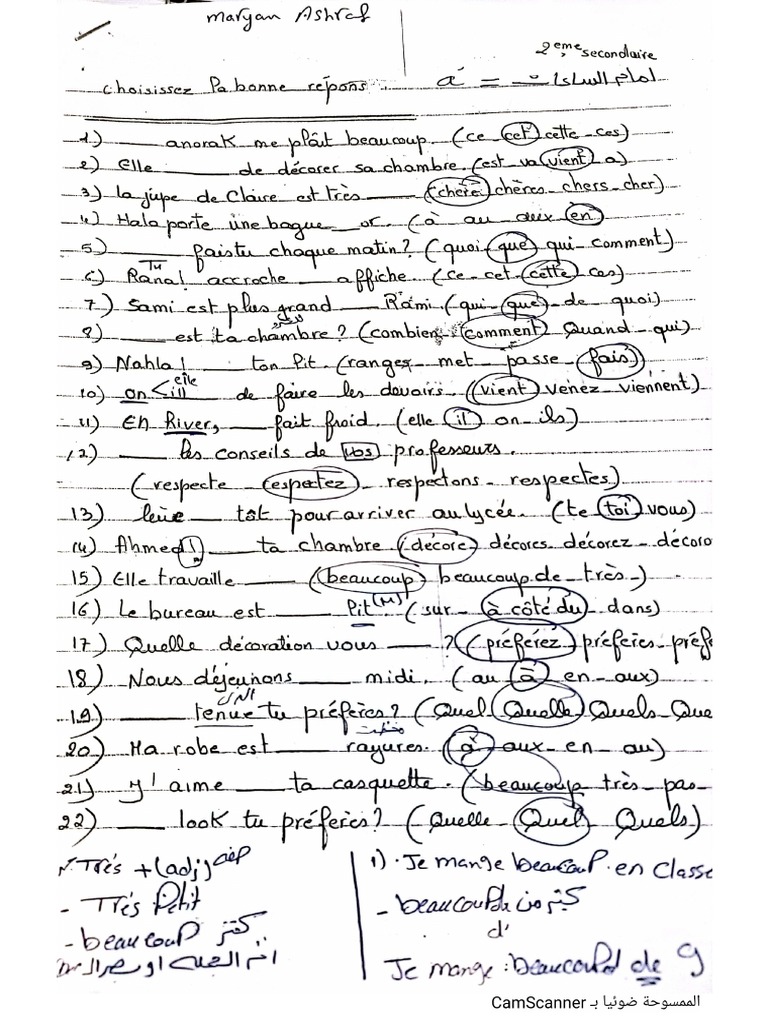 Maryan Ashraf
2ème secondaire
choisissez la bonne répons à = أمام الساعات
1) ___ anorak me plaît beaucoup. (ce - cet - cette - ces)
2) Elle ___ de décorer sa chambre. (est - va - vient - a)
3) la jupe de Claire est très ___ (chère - chères - chers - cher)
4) Hala porte une bague ___ or. (à - au - aux - en)
5) ___ fais tu chaque matin? (quoi - que - qui - comment)
Tu
6) Rana! accroche ___ affiche. (ce - cet - cette - ces)
7) Sami est plus grand ___ Rami. (qui - que - de - quoi)
8) ___ est ta chambre? (combien - comment - Quand - qui)
9) Nahla! ___ ton lit. (ranger - met - passe - fais)
elle
10) on < ill ___ de faire les devoirs. (vient - venez - viennent)
11) En River, ___ fait froid. (elle - il - on - ils)
12) ___ les conseils de vos professeurs.
(respecte - respectez - respectons - respectes)
13) leve ___ tôt pour arriver au lycée. (te - toi - vous)
14) Ahmed! ___ ta chambre (décore - décores - décorez - décoro
15) Elle travaille ___ (beaucoup - beaucoup de - très -)
16) Le bureau est ___ lit (M) (sur - à côté du - dans)
17) Quelle décoration vous ___? (préférez - préfères - préf
18) Nous déjeunons ___ midi. (au - à - en - aux)
19) ___ tenue tu préfères? (Quel - Quelle - Quels - Que
20) Ma robe est ___ rayures. (à - aux - en - au)
21) J'aime ___ ta casquette. (beaucoup - très - pas -
22) ___ look tu préfères? (Quelle - Quel - Quels)
Très + (adj) صفة
- Très Petit
- beaucoup كثير
1) Je mange beaucoup en classe
- beaucoup de كثير من
d'
Je mange beaucoup de g
الممسوحة ضوئيا بـ CamScanner